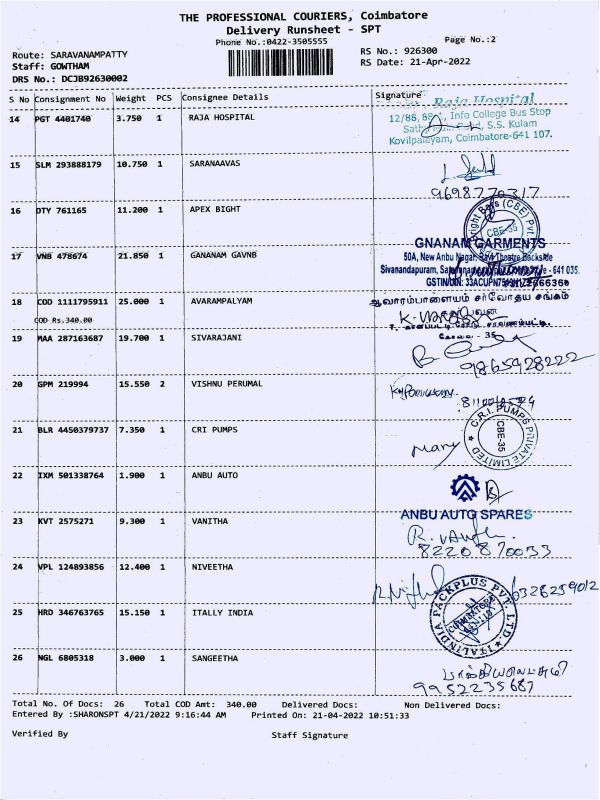 THE PROFESSIONAL COURIERS, Coimbatore
Delivery Runsheet - SPT
Phone No.:0422-3505555
Page No.:2
Route: SARAVANAMPATTY
RS No.: 926300
Staff: GOWTHAM
RS Date: 21-Apr-2022
DRS No.: DCJB92630002
S No Consignment No Weight PCS Consignee Details Signature
Raja Hospital
14 PGT 4401740 3.750 1 RAJA HOSPITAL
Info College Bus Stop
S.S. Kulam
Kovilpalayam, Coimbatore-641 107.
15 SLM 293888179 10.750 1 SARANAAVAS
9698770317
16 DTY 761165 11.200 1 APEX BIGHT
CBE-35
GNANAM GARMENTS
17 VNB 478674 21.850 1 GANANAM GAVNB
50A, New Anbu Nagar, Ravi Theatre Backside
Sivanandapuram, - 641 035.
GSTIN/UIN: 33ACUPN
18 COD 1111795911 25.000 1 AVARAMPALYAM
ஆவாரம்பாளையம் சர்வோதய சங்கம்
COD Rs.340.00
கோவை - 35
19 MAA 287163687 19.700 1 SIVARAJANI
9865928222
20 GPM 219994 15.550 2 VISHNU PERUMAL
21 BLR 4450379737 7.350 1 CRI PUMPS
C.R.I. PUMPS PRIVATE LIMITED
CBE-35
Mary
22 IXM 501338764 1.900 1 ANBU AUTO
ANBU AUTO SPARES
23 KVT 2575271 9.300 1 VANITHA
8220870033
24 VPL 124893856 12.400 1 NIVEETHA
25 HRD 346763765 15.150 1 ITALLY INDIA
ITALINDIA PACKPLUS PVT. LTD.
26 NGL 6805318 3.000 1 SANGEETHA
9952235687
Total No. Of Docs: 26 Total COD Amt: 340.00 Delivered Docs: Non Delivered Docs:
Entered By :SHARONSPT 4/21/2022 9:16:44 AM Printed On: 21-04-2022 10:51:33
Verified By Staff Signature